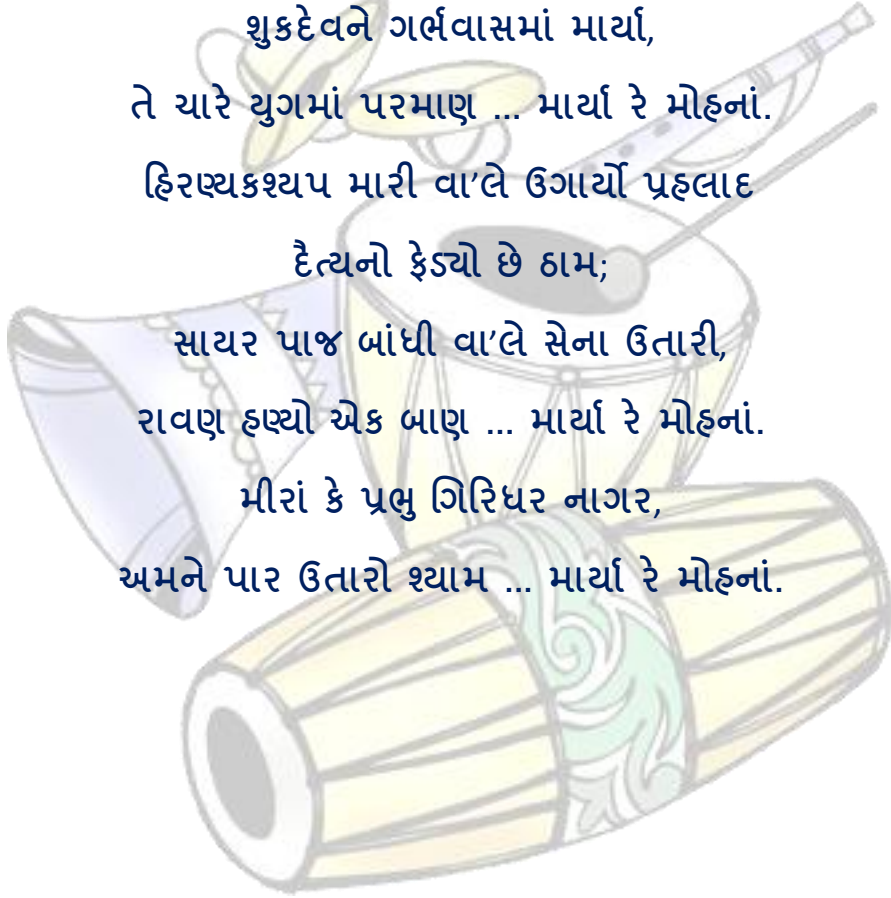 શુકદેવને ગર્ભવાસમાં માર્યા,
તે ચારે યુગમાં પરમાણ ... માર્યા રે મોહનાં.
હિરણ્યકશ્યપ મારી વા’લે ઉગાર્યો પ્રહલાદ
દૈત્યનો ફેડ્યો છે ઠામ;
સાયર પાજ બાંધી વા’લે સેના ઉતારી,
રાવણ હણ્યો એક બાણ ... માર્યા રે મોહનાં.
મીરાં કે પ્રભુ ગિરિધર નાગર,
અમને પાર ઉતારો શ્યામ ... માર્યા રે મોહનાં.